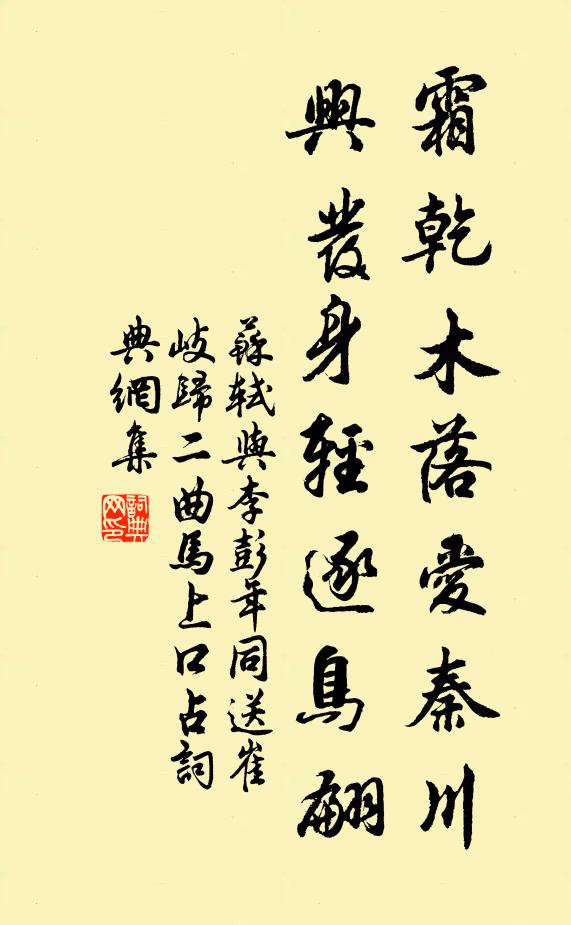 霜乾木落愛秦川
興發身輕逐鳥翩
蘇軾與李彭年同送崔
岐歸二曲馬上口占詞
典網集
詞典
网印